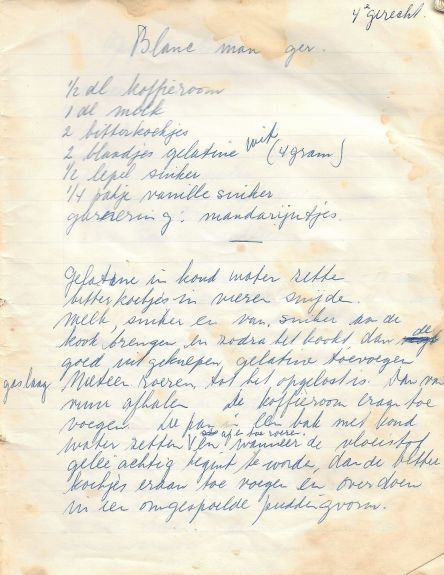 4e gerecht.
Blanc man ger.
1/2 dl koffieroom
1 dl melk
2 bitterkoekjes
2 blaadjes gelatine wit (4 gram)
1/2 lepel suiker
1/4 pakje vanille suiker
garnering: mandarijntjes.
Gelatine in koud water zette
bitterkoekjes in vieren snijde.
Melk, suiker en van. suiker aan de
kook brengen, en zodra het kookt, dan de
goed uitgeknepen gelatine toevoegen
gas laag Meteen roeren, tot het opgelost is. Dan van
vuur afhalen de koffieroom eraan toe
voegen. De pan in een bak met koud
water zetten en af en toe roeren. wanneer de vloeistof
gelei achtig begint te worden, dan de bitter
koekjes eraan toe voegen en overdoen
in een omgespoelde puddingvorm.